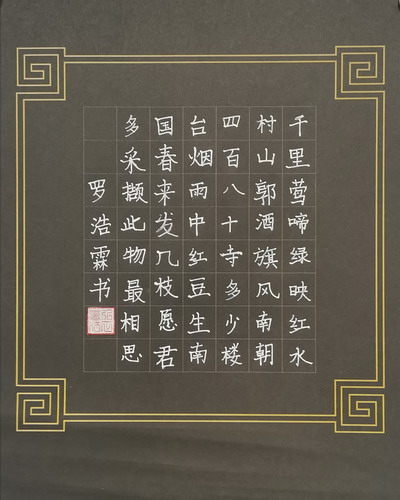 千里莺啼绿映红水
村山郭酒旗风南朝
四百八十寺多少楼
台烟雨中红豆生南
国春来发几枝愿君
多采撷此物最相思
罗浩霖书